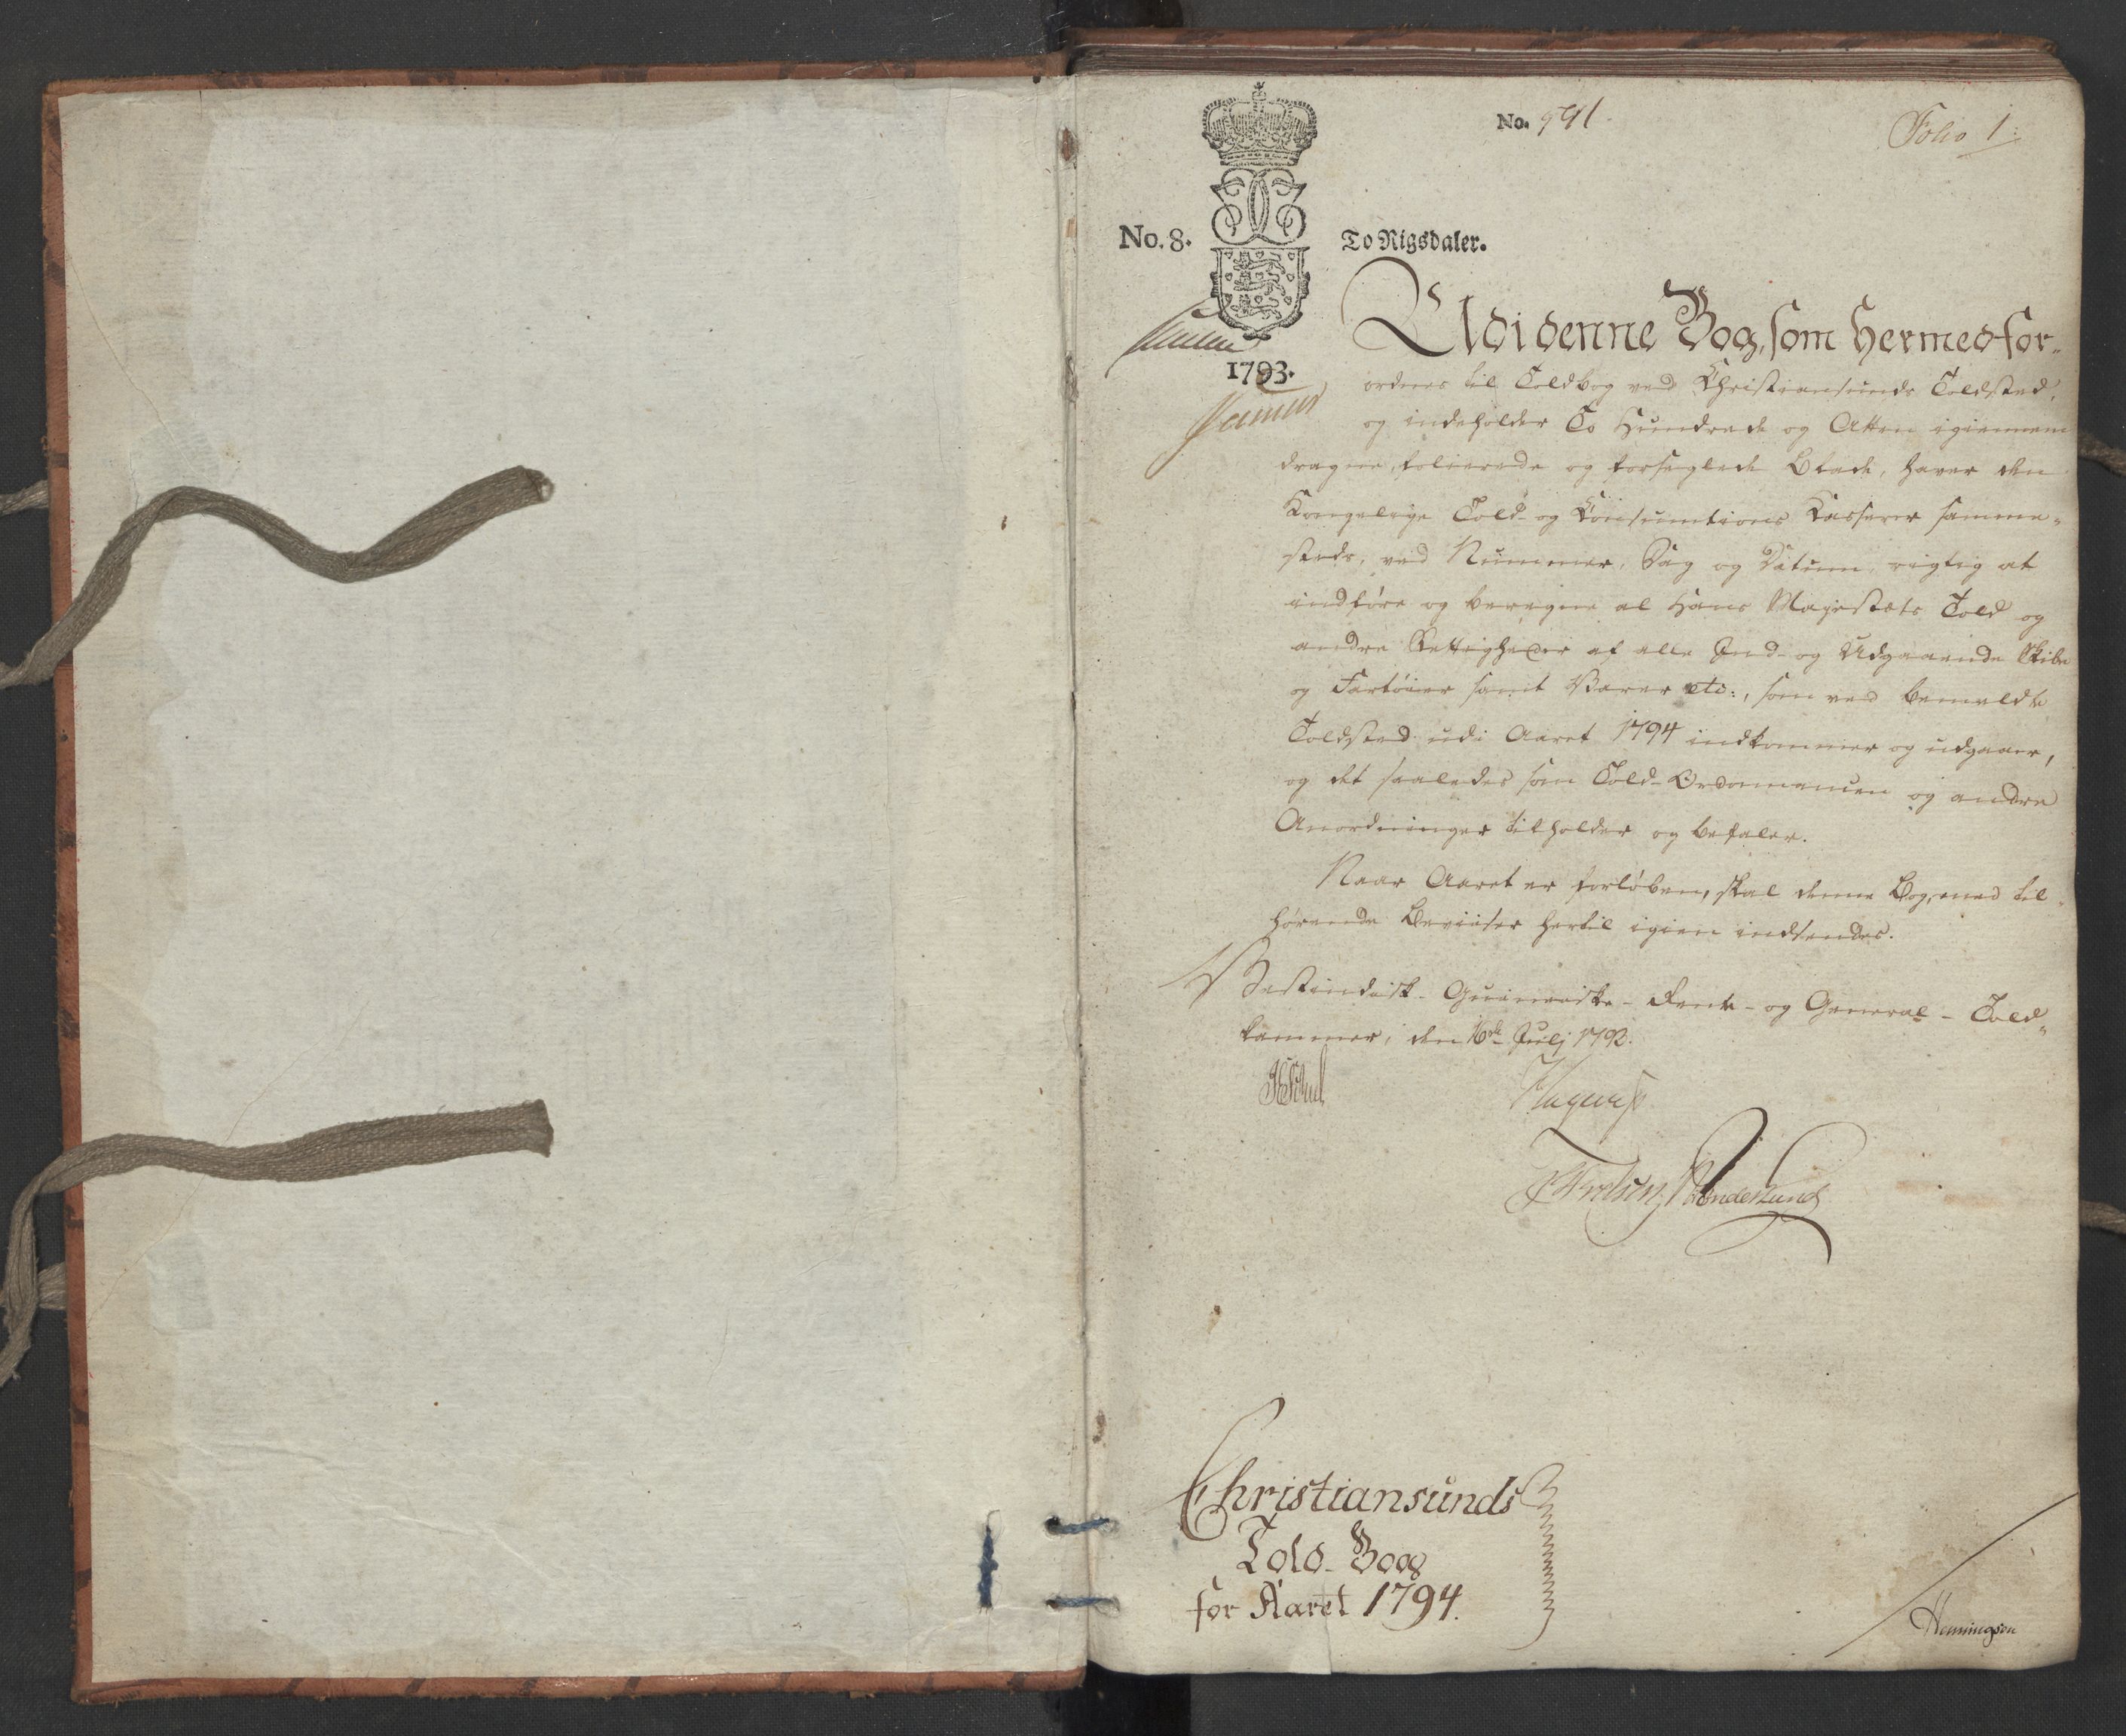 No. 991
Folio 1.
No. 8.
To Rigsdaler.
1793.
Udi denne Bog, som hermed for-
ordnes til Toldbog ved Christiansunds Toldsted,
og indeholder To Hundrede og Atten igiennem
dragne, folierede og forseglede Blade, haver den
Kongelige Told- og Consumtions Casserer samme-
steds, ved Nummer, Dag og Datum, rigtig at
indføre og beregne al Hans Majestæts Told og
andre Rettigheder af alle Ind- og Udgaaende Skibe
og Fartøier samt Varer etc:, som ved bemeldte
Toldsted udi Aaret 1794 indkommer og udgaaer,
og det saaledes som Told-Ordonnancen og andre
Anordninger tilholder og befaler.
Naar Aaret er forløben, skal denne Bog, med til-
hørende Beviiser hertil igien indsendes.
Vestindisk- Guineiske- Rente- og General- Told-
kammer, den 16de Julj 1793.
Wonderlund
Christiansunds
Told-Bog
for Aaret 1794.
Henningsen